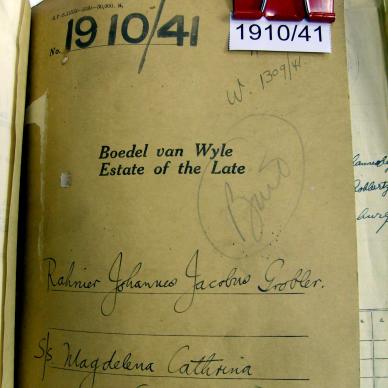 No. 1910/41
1910/41
W. 1309/41
Boedel van Wyle
Estate of the Late
Rahnier Johannes Jacobus Grobler.
S/S Magdelena Cathrina